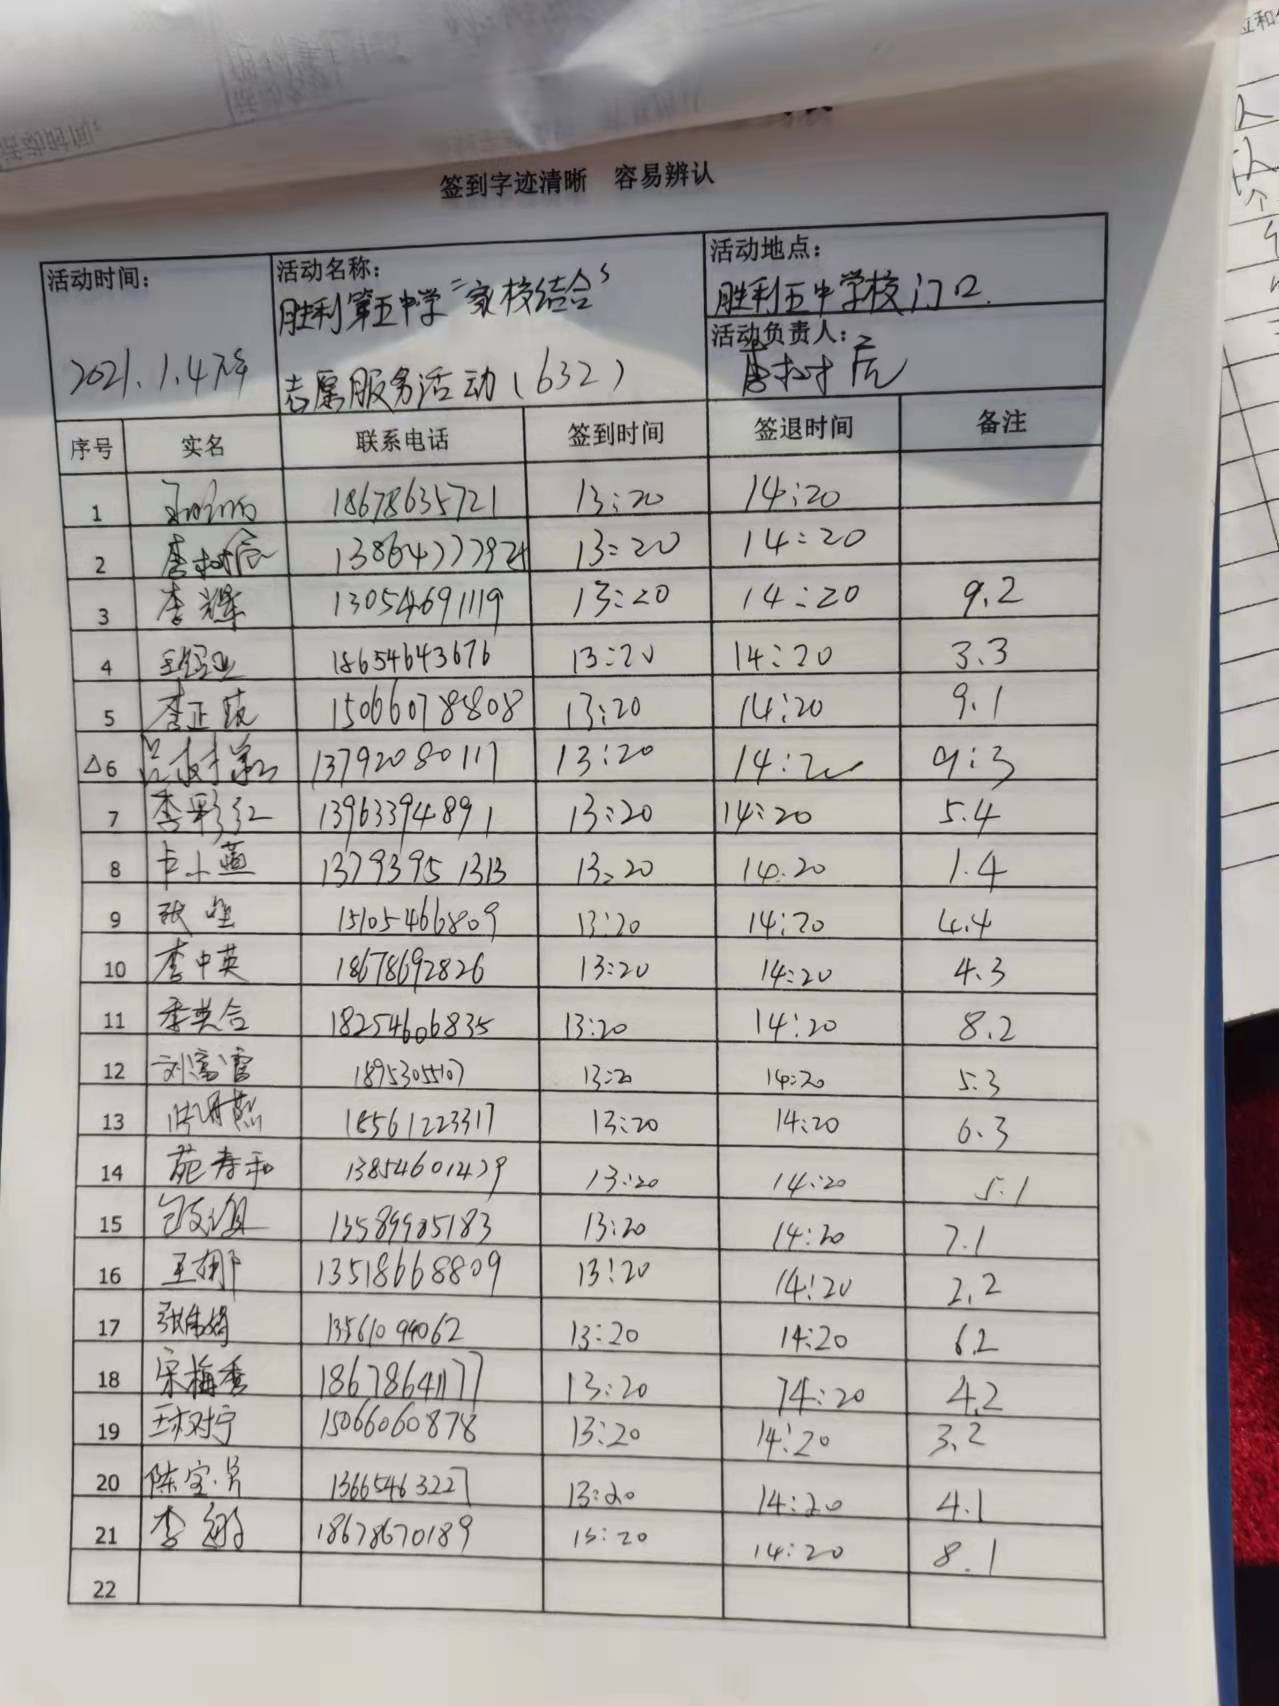 签到字迹清晰 容易辨认
活动时间:
2021.1.4下午
活动名称:
胜利第五中学“家校结合”
志愿服务活动(632)
活动地点:
胜利五中学校门口.
活动负责人:
序号 实名 联系电话 签到时间 签退时间 备注
1 18678635721 13:20 14:20
2 13:20 14:20
3 李辉 13054691119 13:20 14:20 9.2
4 18654643676 13:20 14:20 3.3
5 15066078808 13:20 14:20 9.1
△6 13792080117 13:20 14:20 9:3
7 季彩红 13963394891 13:20 14:20 5.4
8 卞小燕 13793951313 13:20 14:20 1.4
9 15105466809 13:20 14:20 4.4
10 李中英 18678692826 13:20 14:20 4.3
11 季英合 18254606835 13:20 14:20 8.2
12 刘富雷 18953055107 13:20 14:20 5.3
13 18561223317 13:20 14:20 6.3
14 苑寿和 13854601479 13:20 14:20 5.1
15 13589985183 13:20 14:20 7.1
16 王娜 13518668809 13:20 14:20 2.2
17 13561099062 13:20 14:20 6.2
18 宋梅香 18678641177 13:20 14:20 4.2
19 王树宁 15066060878 13:20 14:20 3.2
20 13665463227 13:20 14:20 4.1
21 李敏 18678670189 13:20 14:20 8.1
22